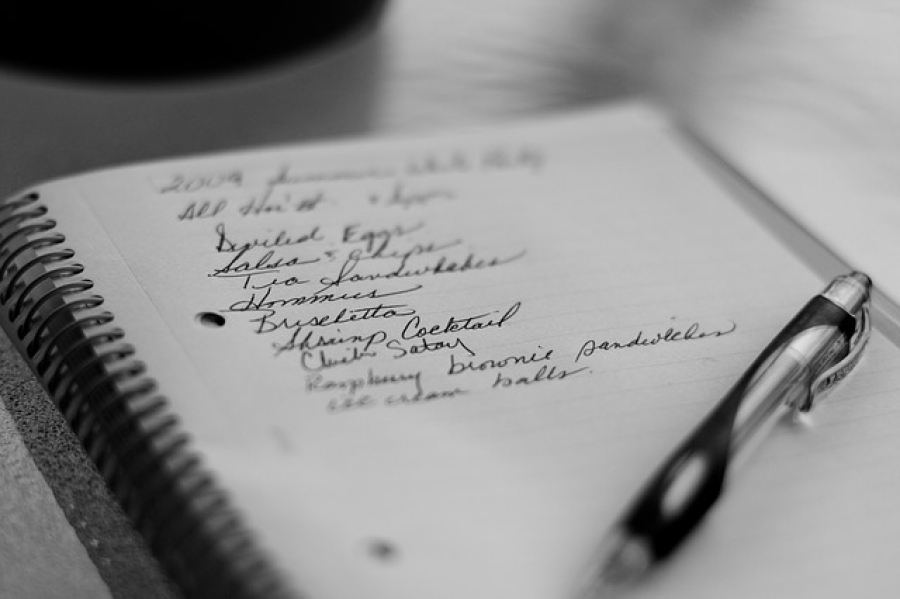 2009 Summer White Party
All Hors
Deviled Eggs
Salsa & Chips
Tea Sandwhiches
Hommus
Bruschetta
Shrimp Cocktail
Satay
Raspberry brownie sandwiches
ice cream balls.